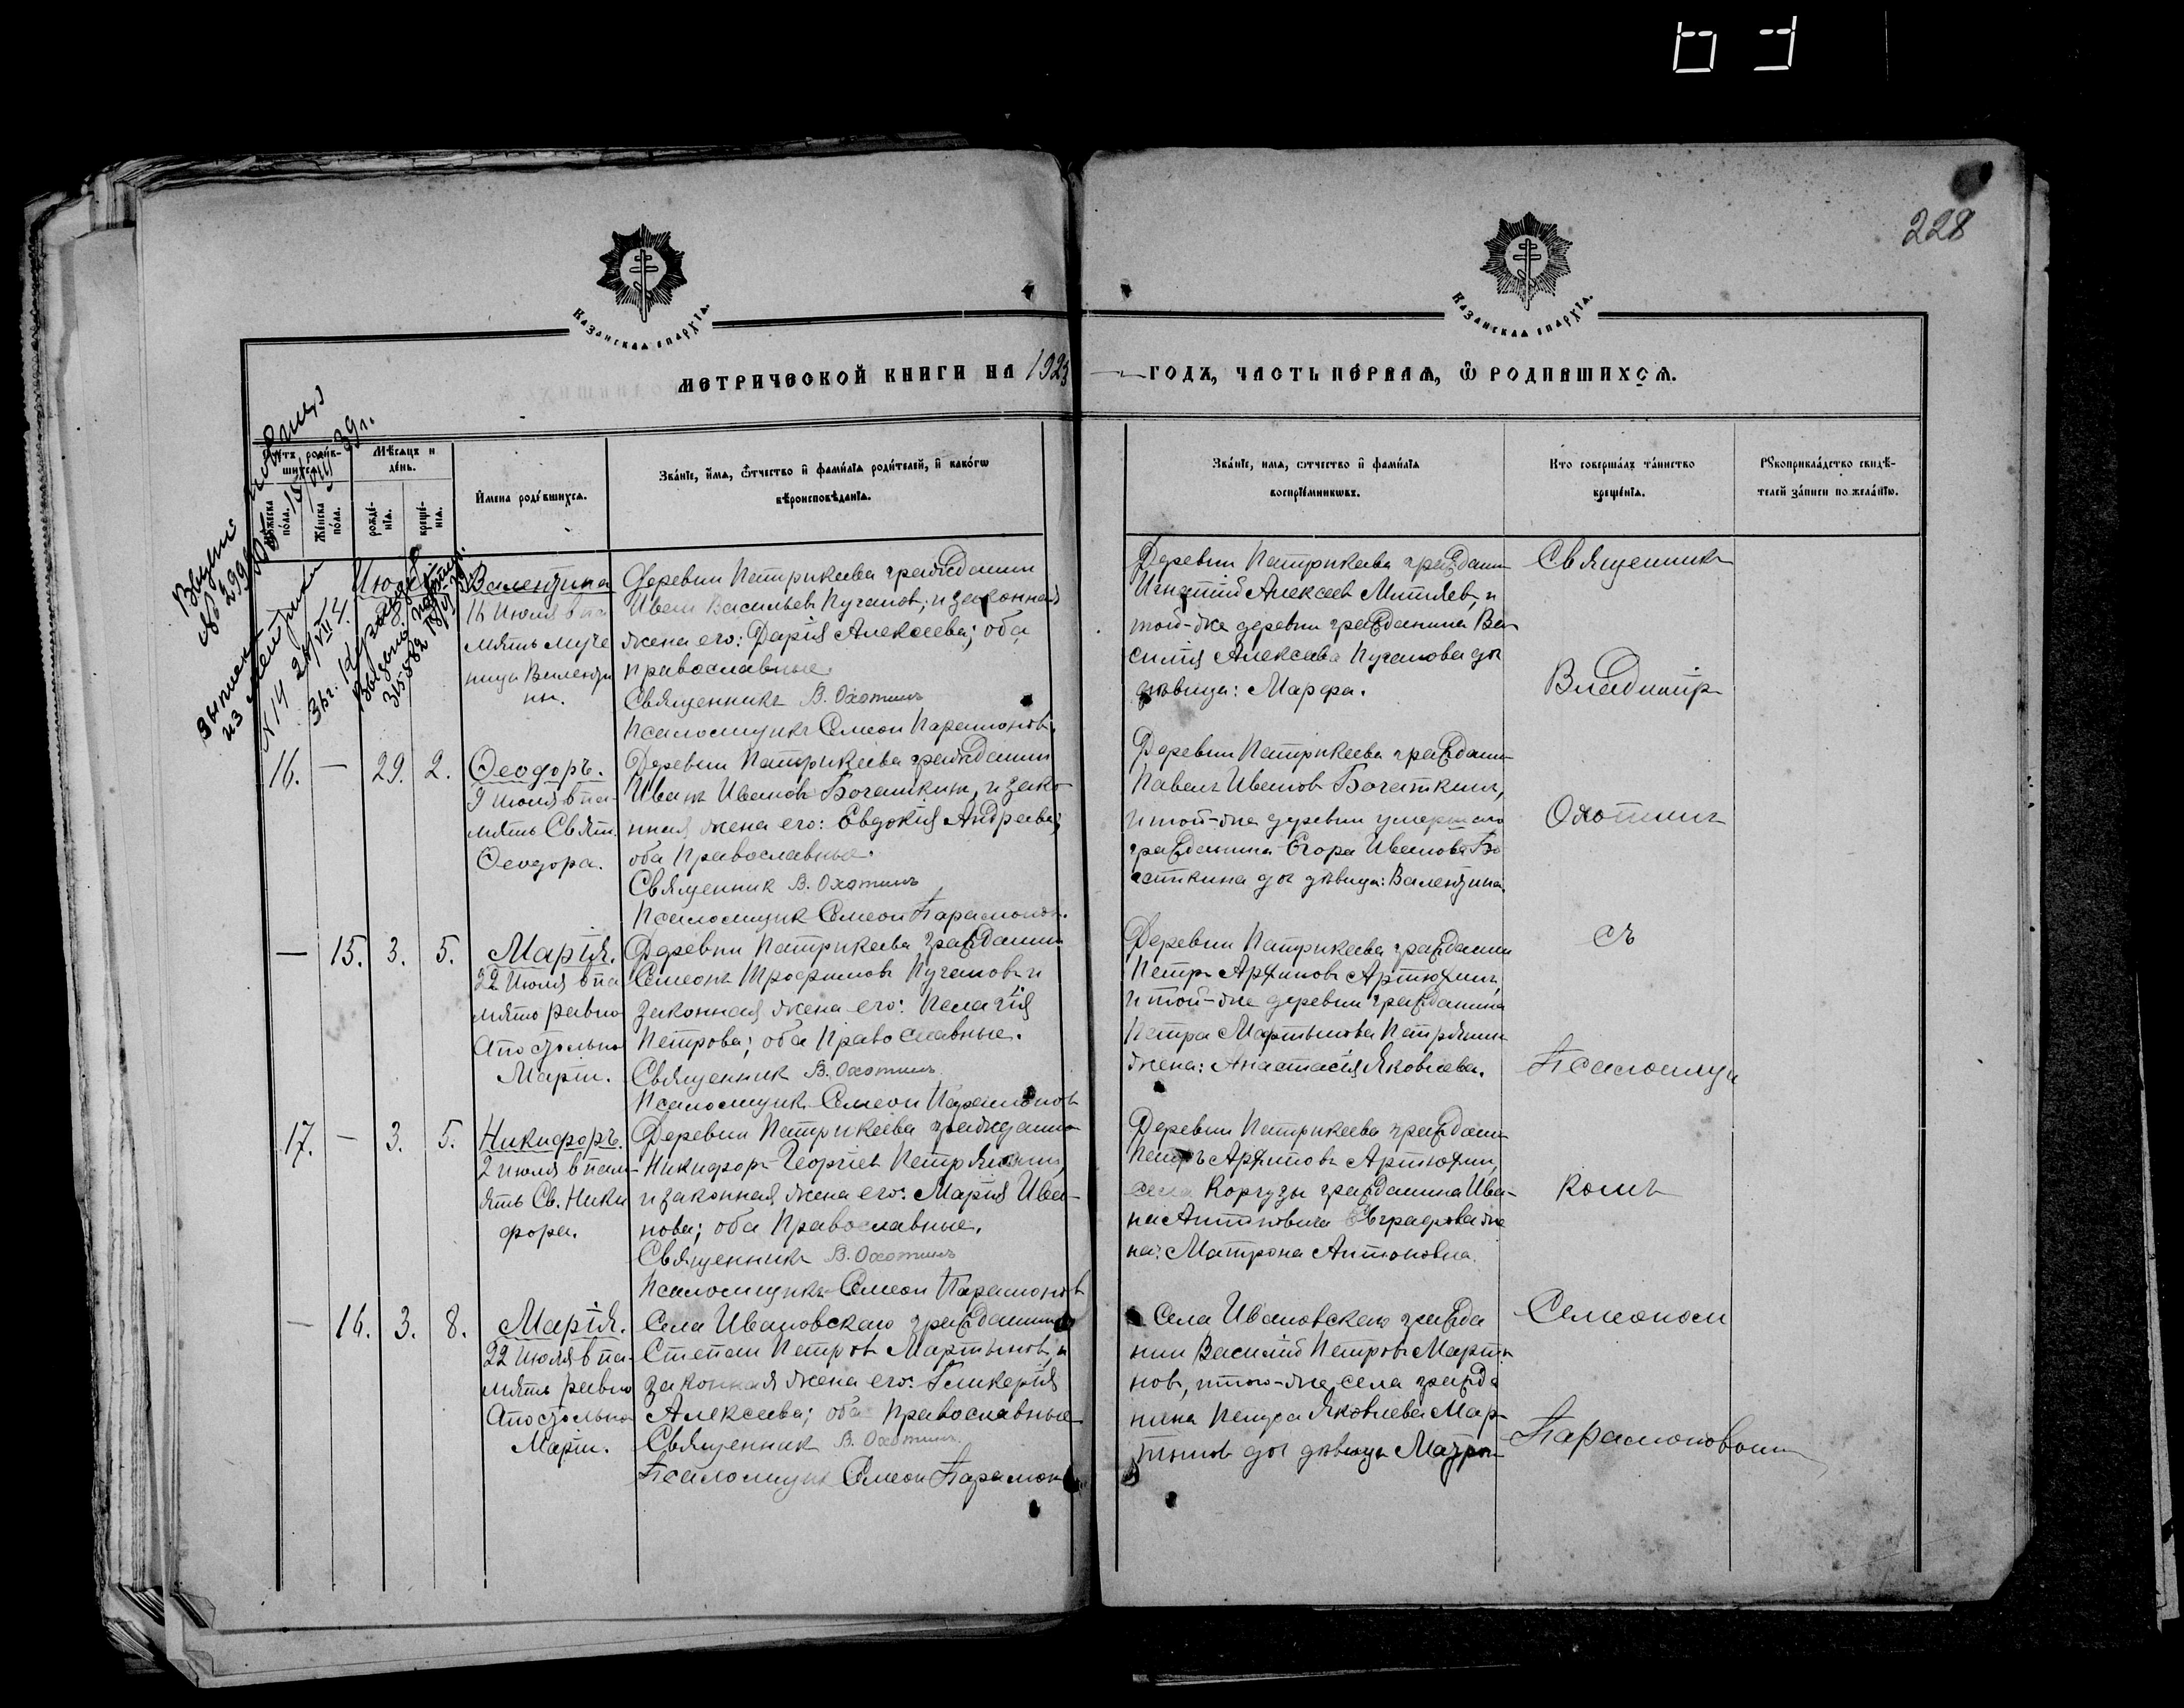 228
Казанская епархїа.
Казанская епархїа.
метрической книги на 1923
годъ, часть первая, ѡ родившихся.
Счетъ родив-
шихся.
Мѣсяцъ и
день.
Мужеска
пола.
Женска
пола.
рожде-
нїя.
креще-
нїя.
Имена родившихся.
Званїе, имя, отчество и фамилїя родителей, и какогѡ
вѣроисповѣданїя.
Званїе, имя, отчество и фамилїя
воспрїемникѡвъ.
Кто совершалъ таинство
крещенїя.
Рукоприкладство свидѣ-
телей записи по желанїю.
39 г.
из метрики
N 14
Валентина
16 Июля в па
мять муче
ницы Валенти
ны.
Деревни Патрикеева гражданин
Иван Васильев Пуганов, и законная
жена его: Дарія Алексеева; оба
православные.
Священникъ В. Охотинъ
Псаломщикъ Симеон Парамонов.
Деревни Патрикеева граждан
Игнатій Алексеев Митяев, и
той-же деревни гражданина Ва
силия Алексеева Пуганова до
девица: Марфа.
Священникъ
Владимір
16. — 29. 2.
Ѳеодоръ.
9 июля в па-
мять Свят.
Ѳеодора.
Деревни Патрикеева гражданин
Иван Иванов Богаткин, и зако
нная жена его: Евдокія Андреева;
оба Православные.
Священник В. Охотинъ
Псаломщик Симеон Парамонов.
Деревни Патрикеева граждан
Павел Иванов Богаткин,
и той-же деревни умершаго
гражданина Егора Иванова Бо
гаткина до девица: Валентина.
Охотинъ
— 15. 3. 5.
Марія.
22 Июля в па
мять равно
Апостольно
Маріи.
Деревни Патрикеева гражданин
Симеон Трофимов Пуганов и
законная жена его: Пелагія
Петрова; оба Православные.
Священник В. Охотинъ
Псаломщик Симеон Парамонов
Деревни Патрикеева гражданин
и той-же деревни гражданина
Петра Мартынова
жена: Анастасія Яковлева.
съ
Псаломщи
17. — 3. 5.
Никифоръ.
2 июля в пам-
ять Св. Ники
фора.
Деревни Патрикеева гражданин
Никифор Георгіев
и законная жена его: Марія Ива-
нова; оба Православные.
Священникъ В. Охотинъ
Псаломщикъ Симеон Парамонов
Деревни Патрикеева граждан
села Коргузы гражданина Ива-
на Антиповича Евграфова же
на: Матрона Антоновна.
комъ
— 16. 3. 8.
Марія.
22 июля в па-
мять равно
Апостольно
Маріи.
Села Ивановскаго гражданин
Степан Петров Мартынов, и
законная жена его: Гликерія
Алексеева; оба Православные
Священник В. Охотинъ
Псаломщик Симеон Парамонов
Села Ивановскаго гражда
нин Василій Петров Марты
нов, и того-же села гражда
нина Петра Яковлева Мар-
тынов до девица Матрон
Симеоном
Парамоновым